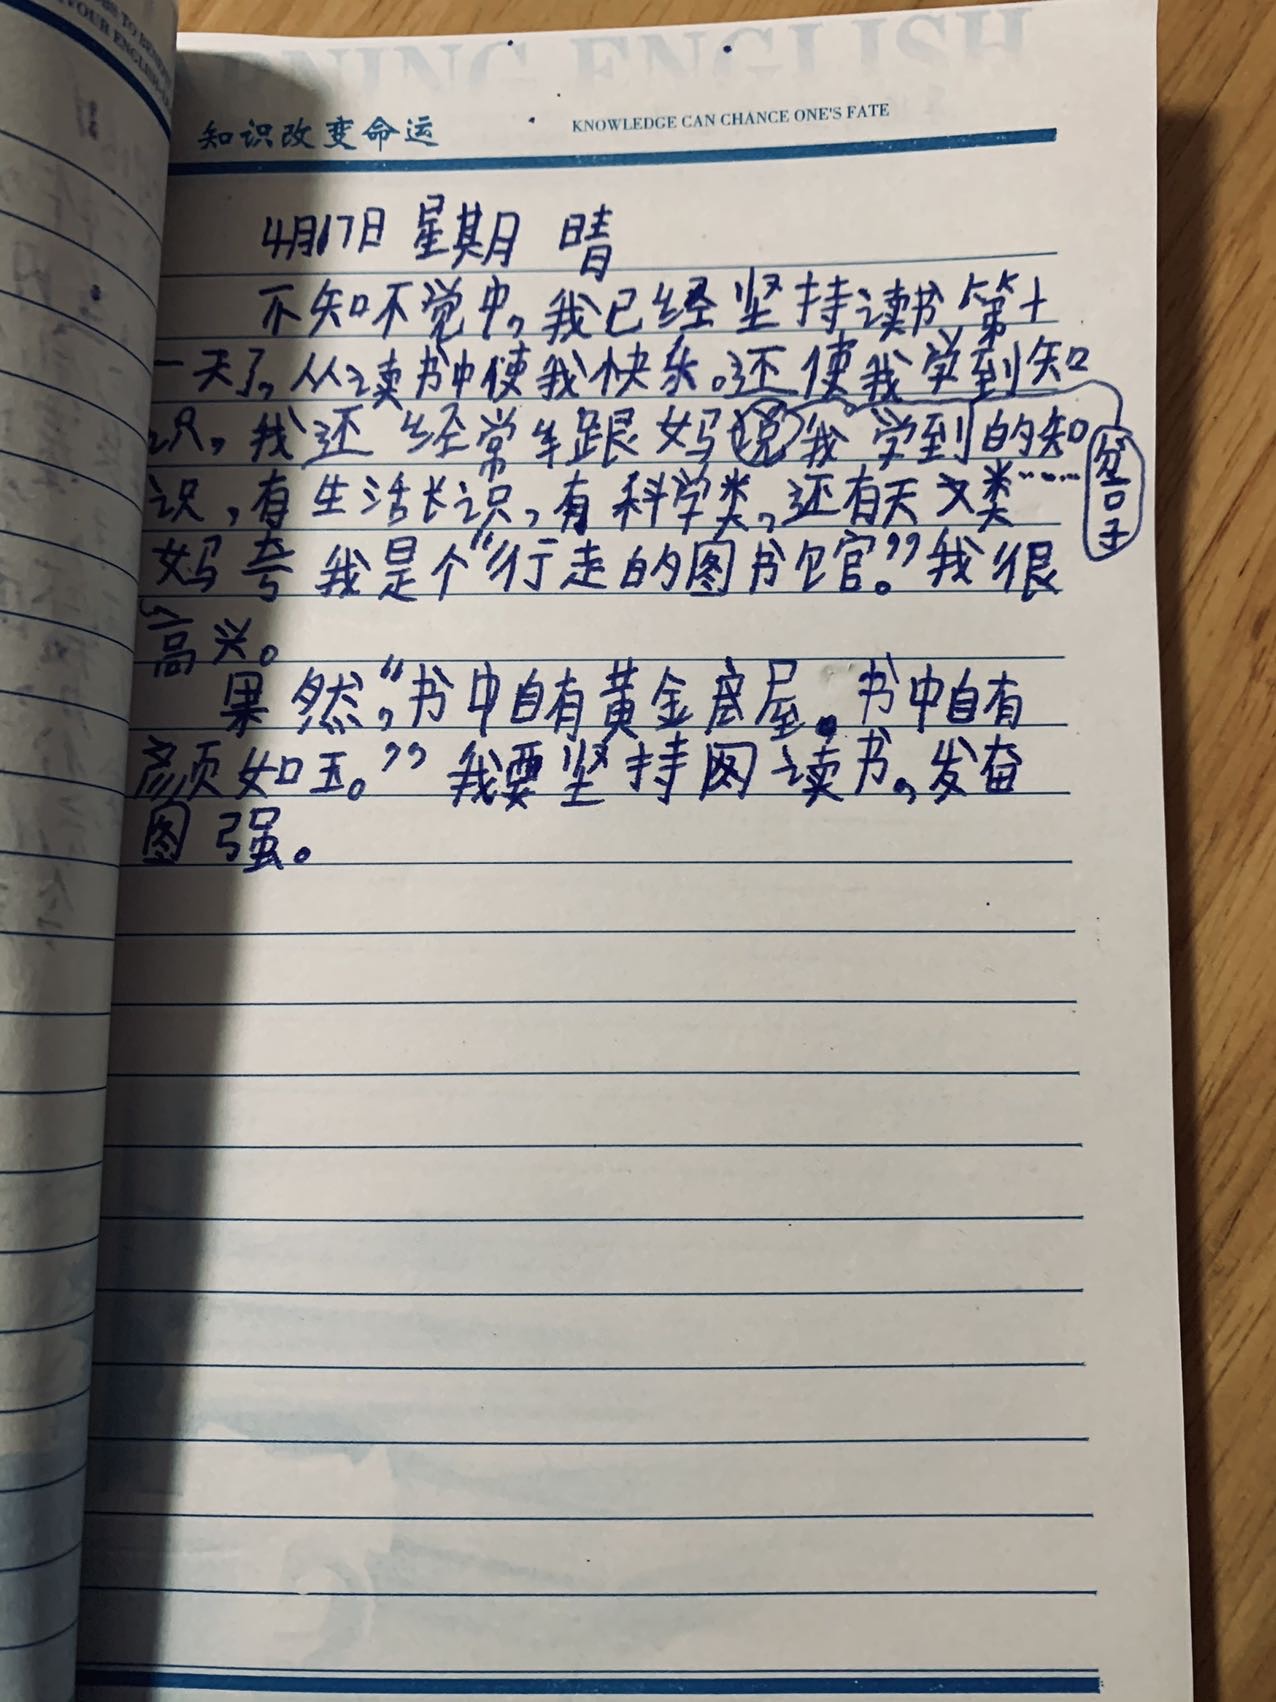 知识改变命运
KNOWLEDGE CAN CHANCE ONE'S FATE
4月17日 星期月 晴
不知不觉中,我已经坚持读书第十
一天了,从读书中使我快乐。还使我学到知
识,我还经常跟妈说我学到的知
识,有生活长识,有科学类,还有天文类……
妈夸我是个“行走的图书馆。”我很
高兴。
果然,“书中自有黄金屋。书中自有
颜如玉。”我要坚持读书,发奋
图强。